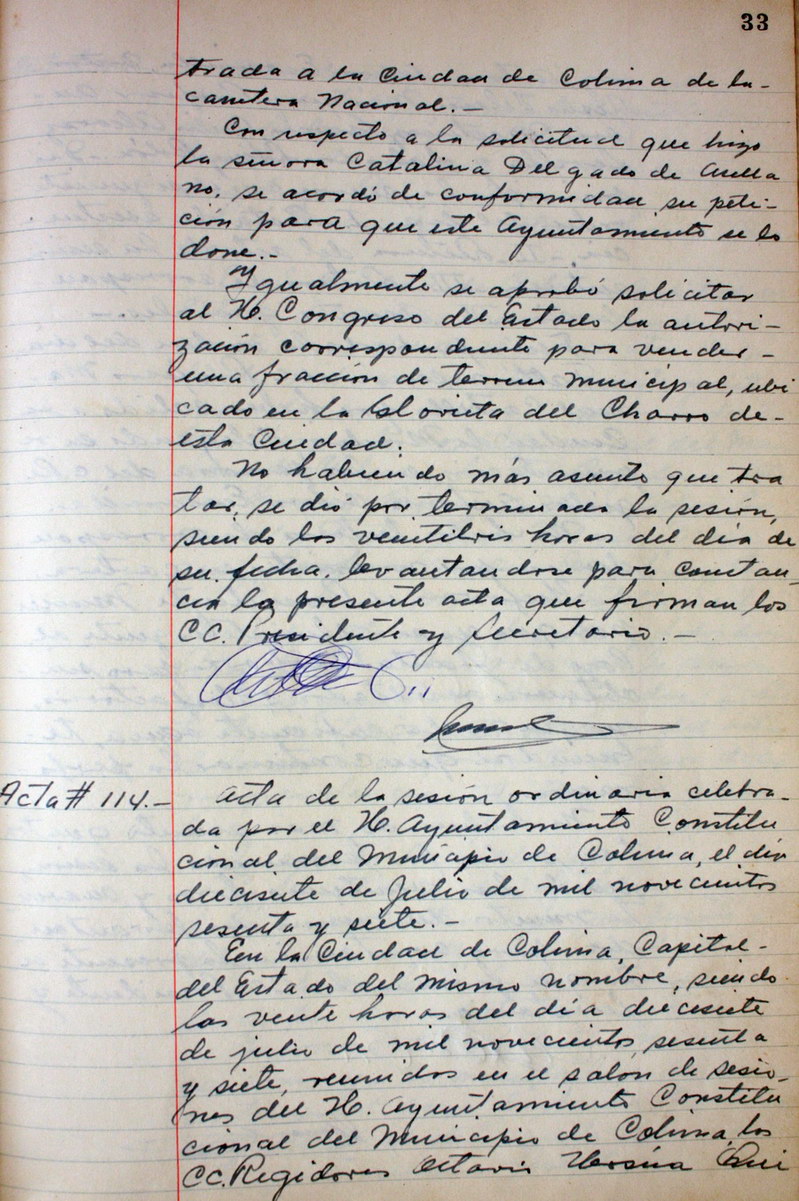 33
trada a la Ciudad de Colima de la-
carretera Nacional.-
Con respecto a la solicitud que hizo
la señora Catalina Delgado de Arella
no, se acordó de conformidad su peti-
ción para que este Ayuntamiento se lo
done.-
Ygualmente se aprobó solicitar
al H. Congreso del Estado la autori-
zación correspondiente para vender-
una fracción de terreno municipal, ubi
cado en la Glorieta del Charro de-
esta Ciudad.
No habiendo más asunto que tra
tar, se dió por terminada la sesión,
siendo las ventitris horas del día de
su fecha, levantandose para constan-
cia la presente acta que firman los
CC. Presidente y Secretario.-
Acta # 114.- Acta de la sesión ordinaria celebra-
da por el H. Ayuntamiento Constitu
cional del Municipio de Colima, el día
diecisiete de Julio de mil novecientos
sesenta y siete.-
En la Ciudad de Colima, Capital-
del Estado del mismo nombre, siendo
las vente horas del día diecisiete
de julio de mil novecientos sesenta
y siete, reunidos en el salón de sesio-
nes del H. Ayuntamiento Constitu
cional del Municipio de Colima, los
CC. Regidores Octavio